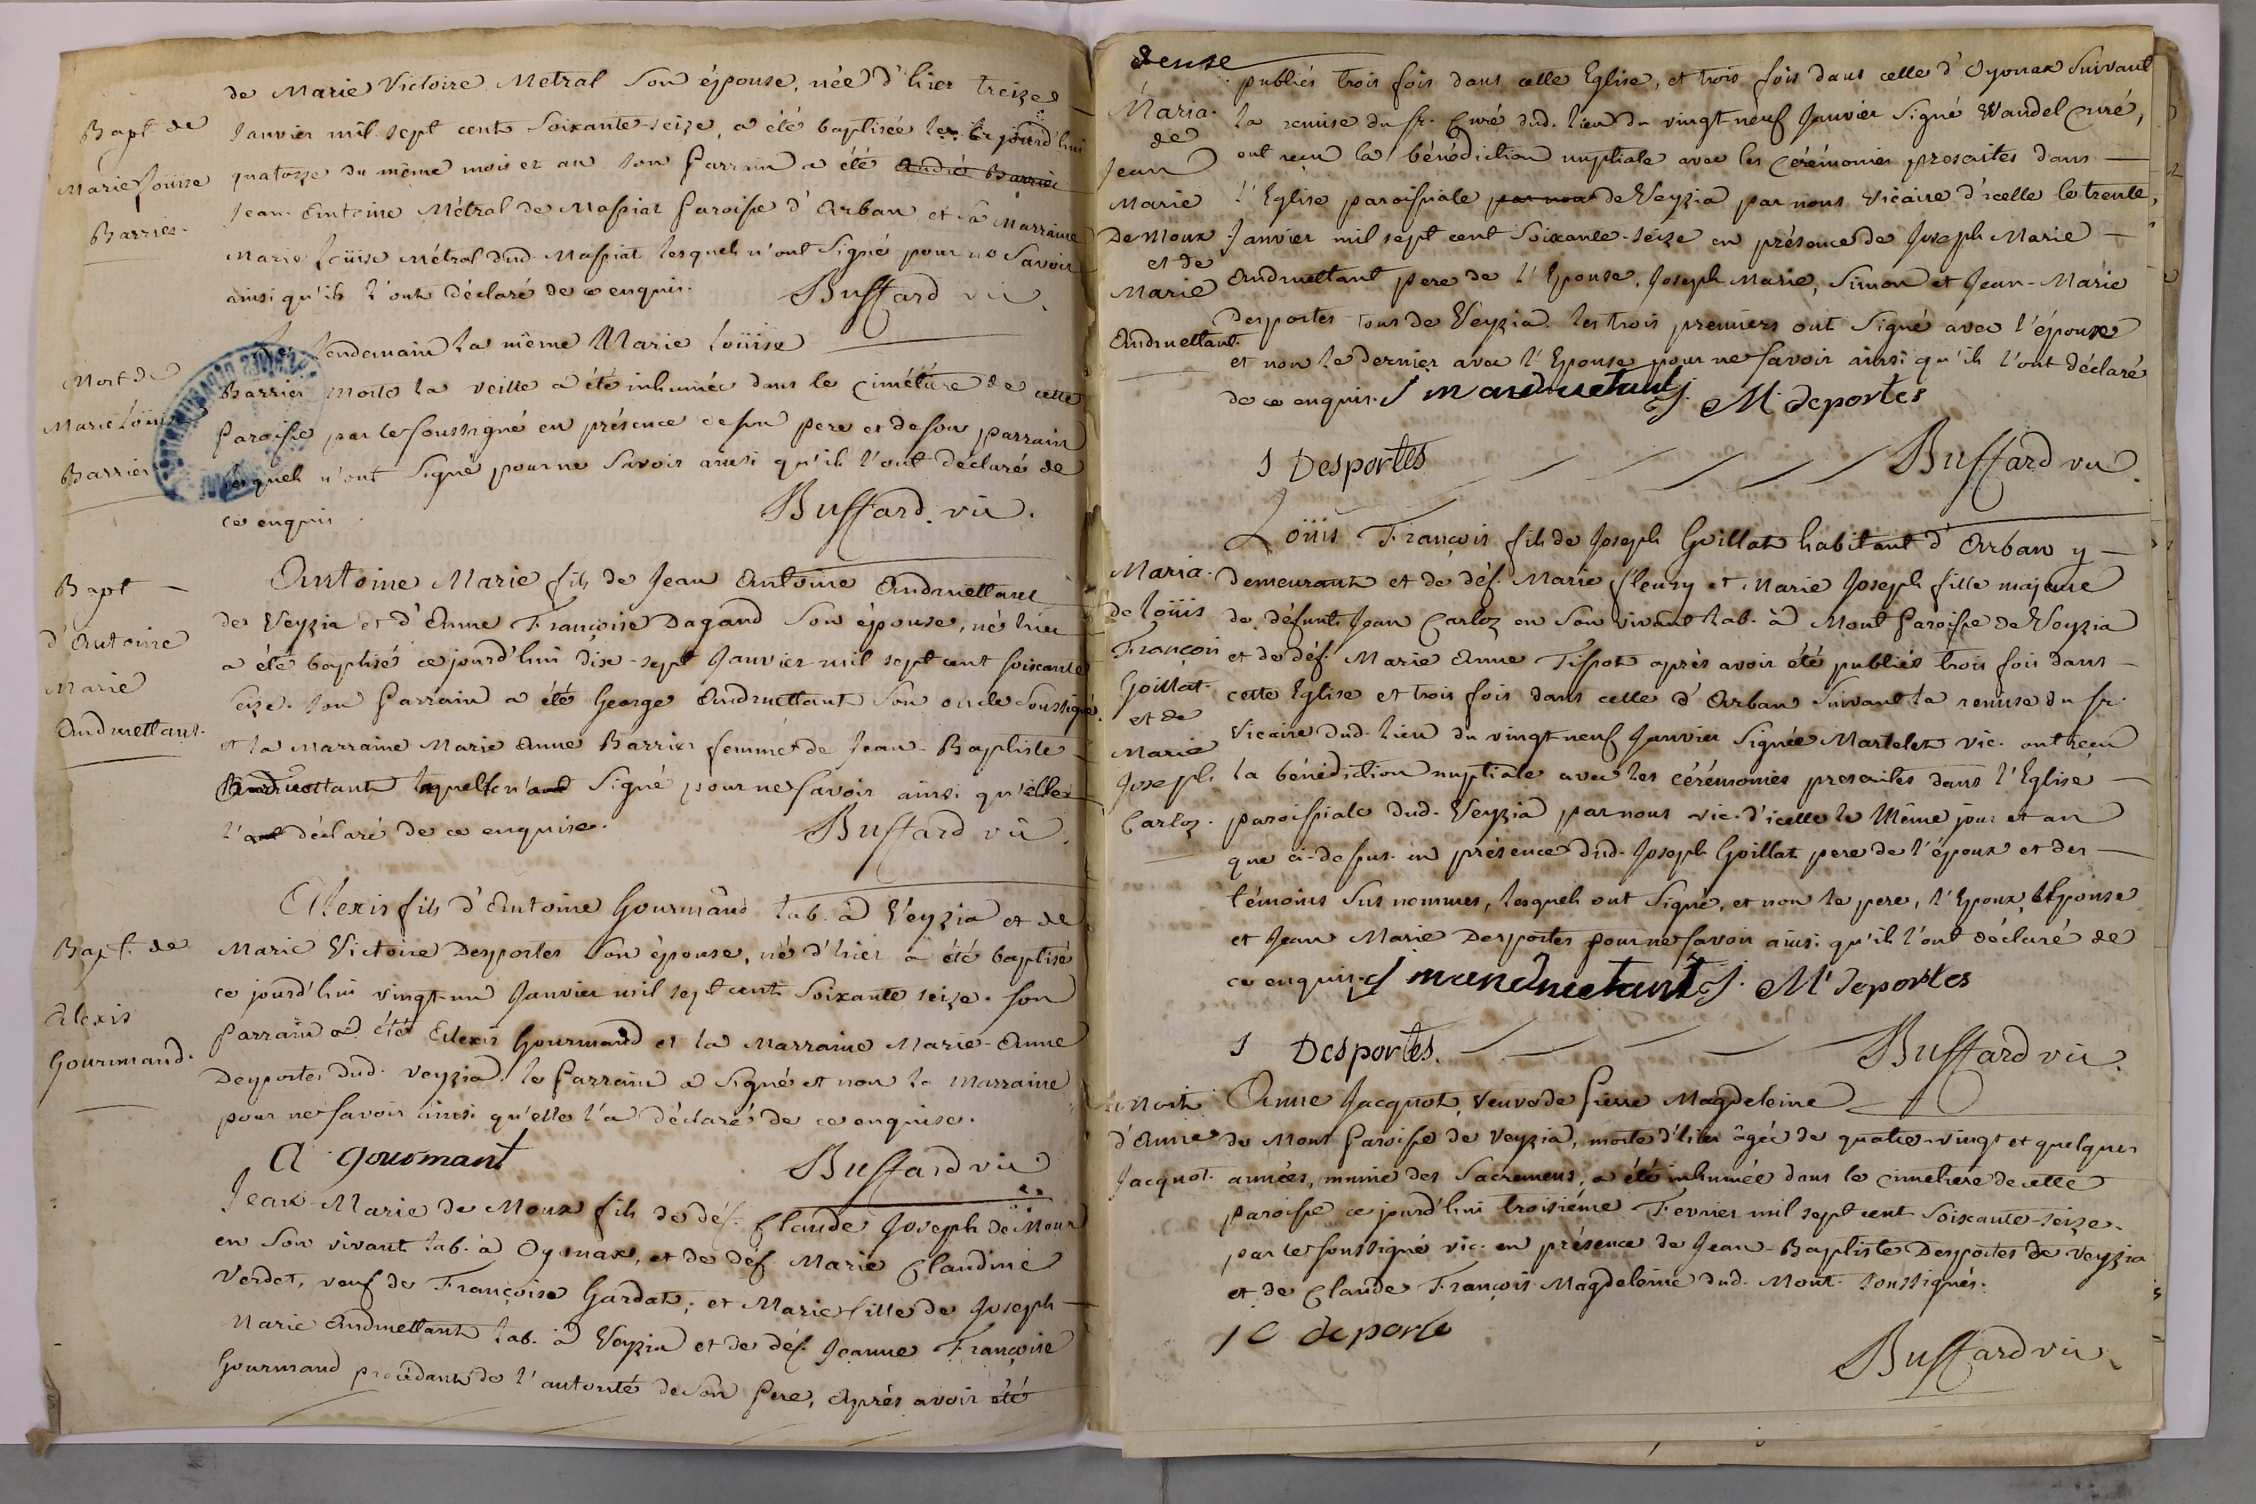 de Marie Victoire Metral son épouse, née d'hier treize
Bapt. de
Marie Loüise
Barrier.
Janvier mil sept cent soixante-seize, a été baptisée ce jourd'hui
quatorze du même mois et an son Parrain a été André Barrier
Jean Antoine Métral de Massiat Paroisse d'Arban et la Marraine
Marie Loüise Métral dud. Massiat lesquels n'ont signé pour ne savoir
ainsi qu'ils l'ont déclaré de ce enquis. Buffard vic.
Mort de
Marie Loüise
Barrier
Le lendemain la même Marie Loüise
Barrier morte la veille a été inhumée dans le cimétiere de cette
Paroisse par le soussigné en présence de son pere et de son parrain
lesquels n'ont signé pour ne savoir ainsi qu'ils l'ont déclaré de
ce enquis Buffard vic.
Bapt
d'Antoine
Marie
Andruettant.
Antoine Marie fils de Jean Antoine Andruettant
de Veyzia et d'Anne Françoise Dagand son épouse, né hier
a été baptisé ce jourd'hui dix-sept Janvier mil sept cent soixante
seize. son Parrain a été George Andruettant son oncle soussigné.
et la marraine Marie Anne Barrier femme de Jean-Baptiste
Andruettant laquelle n'a signé pour ne savoir ainsi qu'elle
l'a déclaré de ce enquise. Buffard vic
Bapt. de
Alexis
Gourmand.
Alexis fils d'Antoine Gourmand hab. à Veyzia et de
Marie Victoire Desportes son épouse, né d'hier a été baptisé
ce jourd'hui vingt-un Janvier mil sept cent soixante seize. son
Parrain a été Alexis Gourmand et la Marraine Marie-Anne
Desportes dud. Veyzia. le Parrain a signé et non la marraine
pour ne savoir ainsi qu'elle l'a déclaré de ce enquise.
A gourmant Buffard vic
Jean-Marie de Moux fils de déf. Claude Joseph de Moux
en son vivant hab. à Oyonax, et de déf. Marie Claudine
Verdet, veuf de Françoise Gardat, et Marie fille de Joseph
Marie Andruettant hab. à Veyzia et de déf. Jeanne Françoise
Gourmand procédant de l'autorité de son Pere, après avoir été
deuse
Maria.
de
Jean
Marie
De Moux
et de
Marie
Andruettant.
publiés trois fois dans cette Eglise, et trois fois dans celle d'Oyonax suivant
la remise du sr. Curé dud. lieu du vingt-neuf Janvier signé Wandel Curé,
ont reçu la bénédiction nuptiale avec les cérémonies prescrites dans
l'Eglise paroissiale par nous de Veyzia par nous Vicaire d'icelle le trente
Janvier mil sept cent soixante-seize en présence de Joseph Marie
Andruettant pere de l'Epouse, Joseph Marie, Simon et Jean-Marie
Desportes tous de Veyzia. les trois premiers ont signé avec l'époux
et non le dernier avec l'Epouse pour ne savoir ainsi qu'ils l'ont déclaré
de ce enquis. J m andruetant J. M. deportes
S Desportes Buffard vic
Maria.
de Loüis
François
Goillat.
et de
Marie
Joseph
Carloz.
Loüis François fils de Joseph Goillat habitant d'Arban y
demeurant et de déf. Marie Fleury et Marie Joseph fille majeure
de défunt Jean Carloz en son vivant hab. à Mont Paroisse de Veyzia
et de déf. Marie Anne Tissot après avoir été publiés trois fois dans
cette Eglise et trois fois dans celle d'Arban suivant la remise du sr.
Vicaire dud. lieu du vingt-neuf Janvier signée Martelet vic. ont reçu
la bénédiction nuptiale avec les cérémonies prescrites dans l'Eglise
paroissiale dud. Veyzia par nous vic. d'icelle le même jour et an
que ci-dessus. en présence dud. Joseph Goillat pere de l'époux et des
témoins sus nommés, lesquels ont signé, et non le pere, l'Epoux, l'Epouse
et Jean Marie Desportes pour ne savoir ainsi qu'ils l'ont déclaré de
ce enquis. J m andruetant J. M deportes
S Desportes. Buffard vic.
Mort
d'Anne
Jacquot.
Anne Jacquot, veuve de Pierre Magdeleine
de Mont Paroisse de Veyzia, morte d'hier âgée de quatre-vingt et quelques
années, munie des Sacremens, a été inhumée dans le cimetiere de cette
paroisse ce jourd'hui troisiéme Fevrier mil sept cent soixante-seize.
par le soussigné vic. en présence de Jean-Baptiste Desportes de Veyzia
et de Claude François Magdeleine dud. Mont soussignés.
deporte
Buffard vic